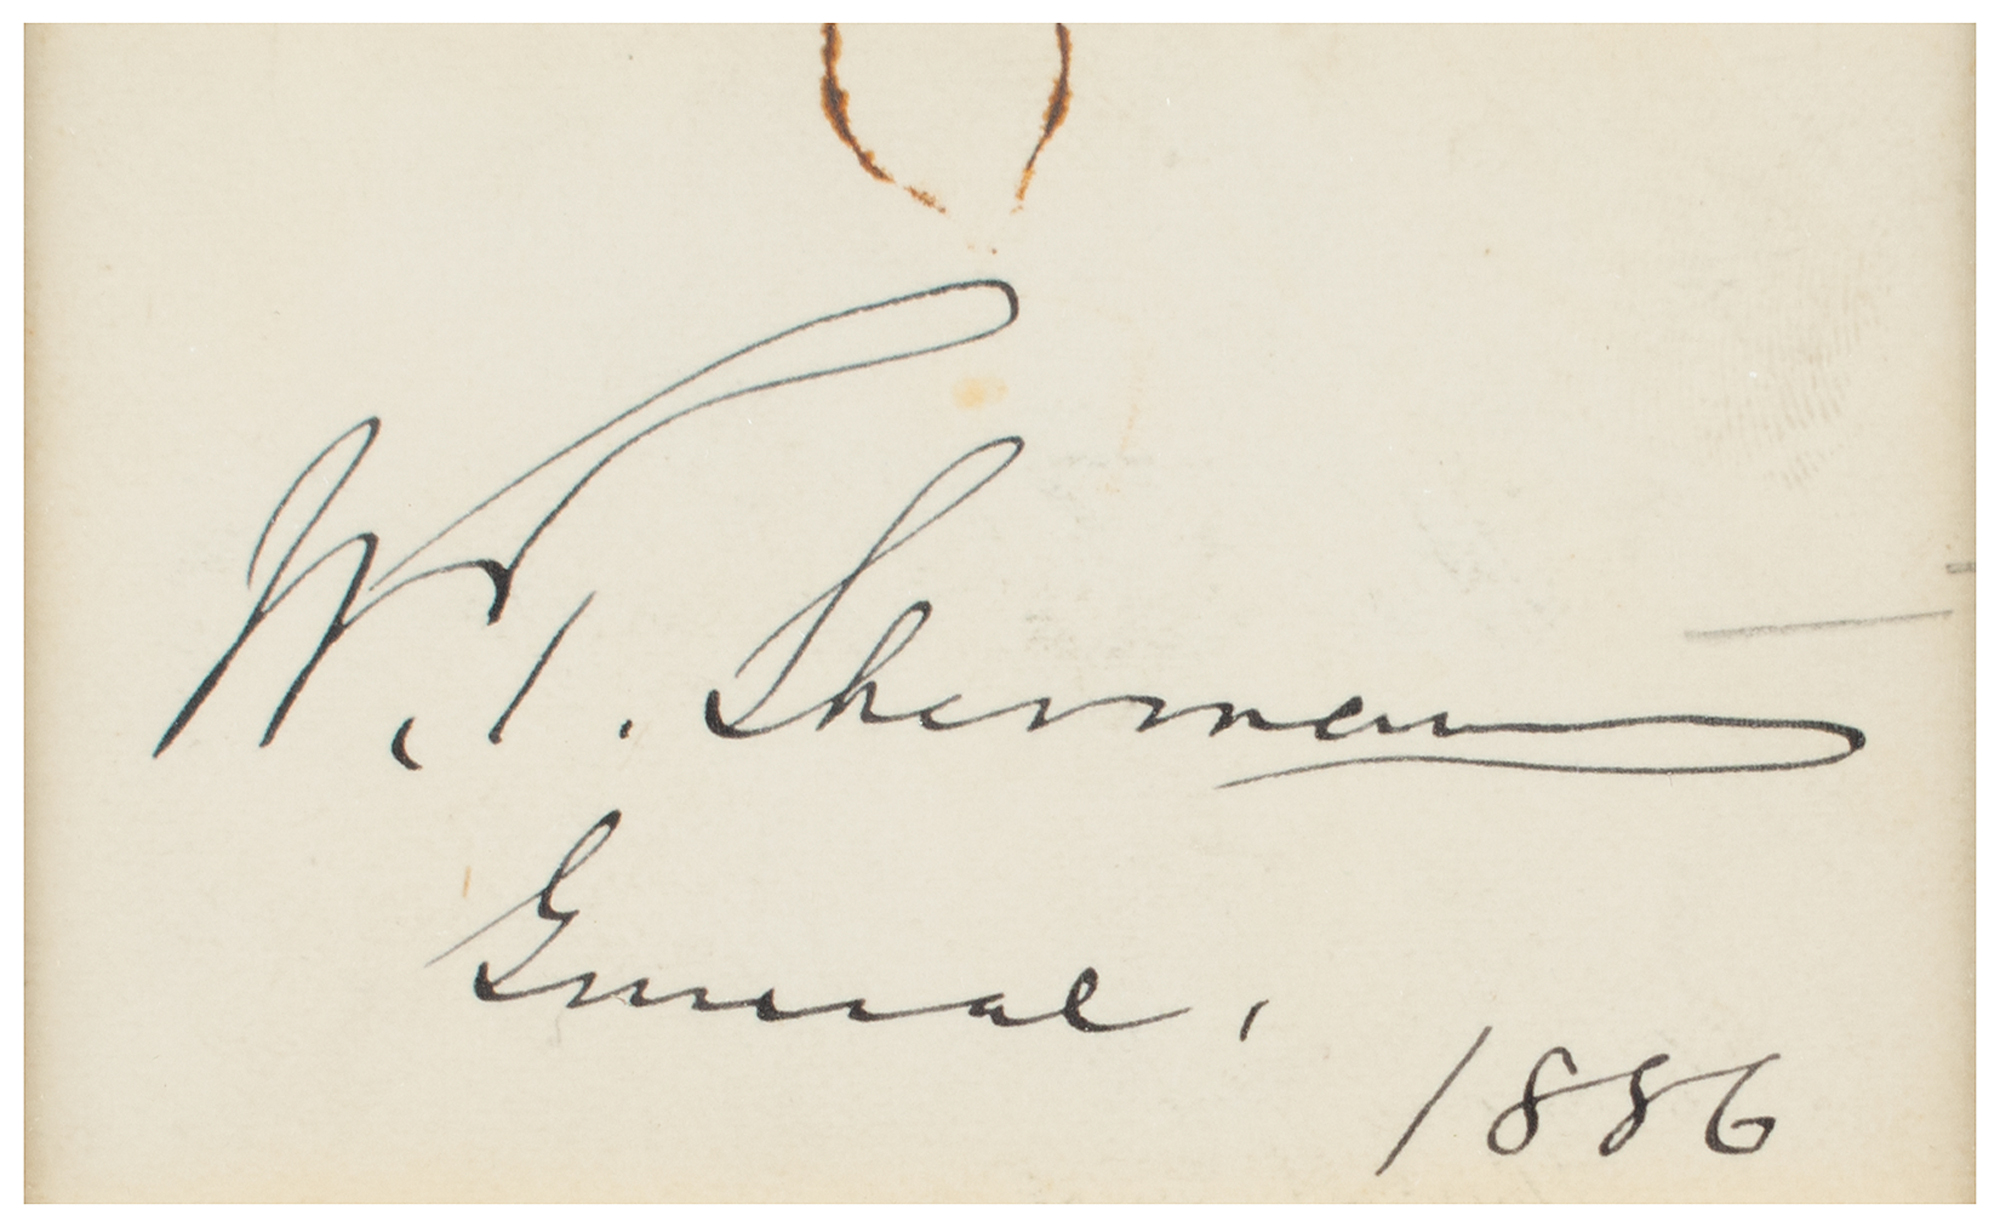 W. T. Sherman
General,
1886